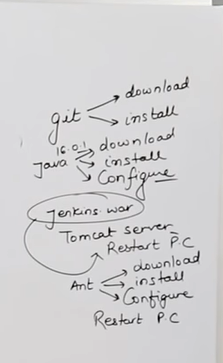 download
git
install
16.0.1
download
Java
install
Configure
Jenkins.war
Tomcat server
Restart P.C
download
Ant
install
Configure
Restart P.C